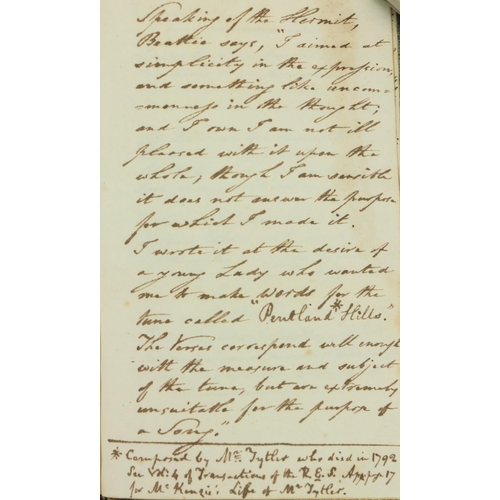 Speaking of the Hermit,
Beattie says, "I aimed at
simplicity in the expression,
and something like uncom-
-monness in the thought;
and I own I am not ill
pleased with it upon the
whole, though I am sensible
it does not answer the purpose
for which I made it.
I wrote it at the desire of
a young Lady who wanted
me to make words for the
tune called "Pentland * Hills."
The Verses correspond well enough
with the measure and subject
of the tune, but are extremely
unsuitable for the purpose of
a Song."
* Composed by Mr. Tytler who died in 1792
See of Transactions of the R. E. S. 17
for McKenzie's Life of Mr Tytler.